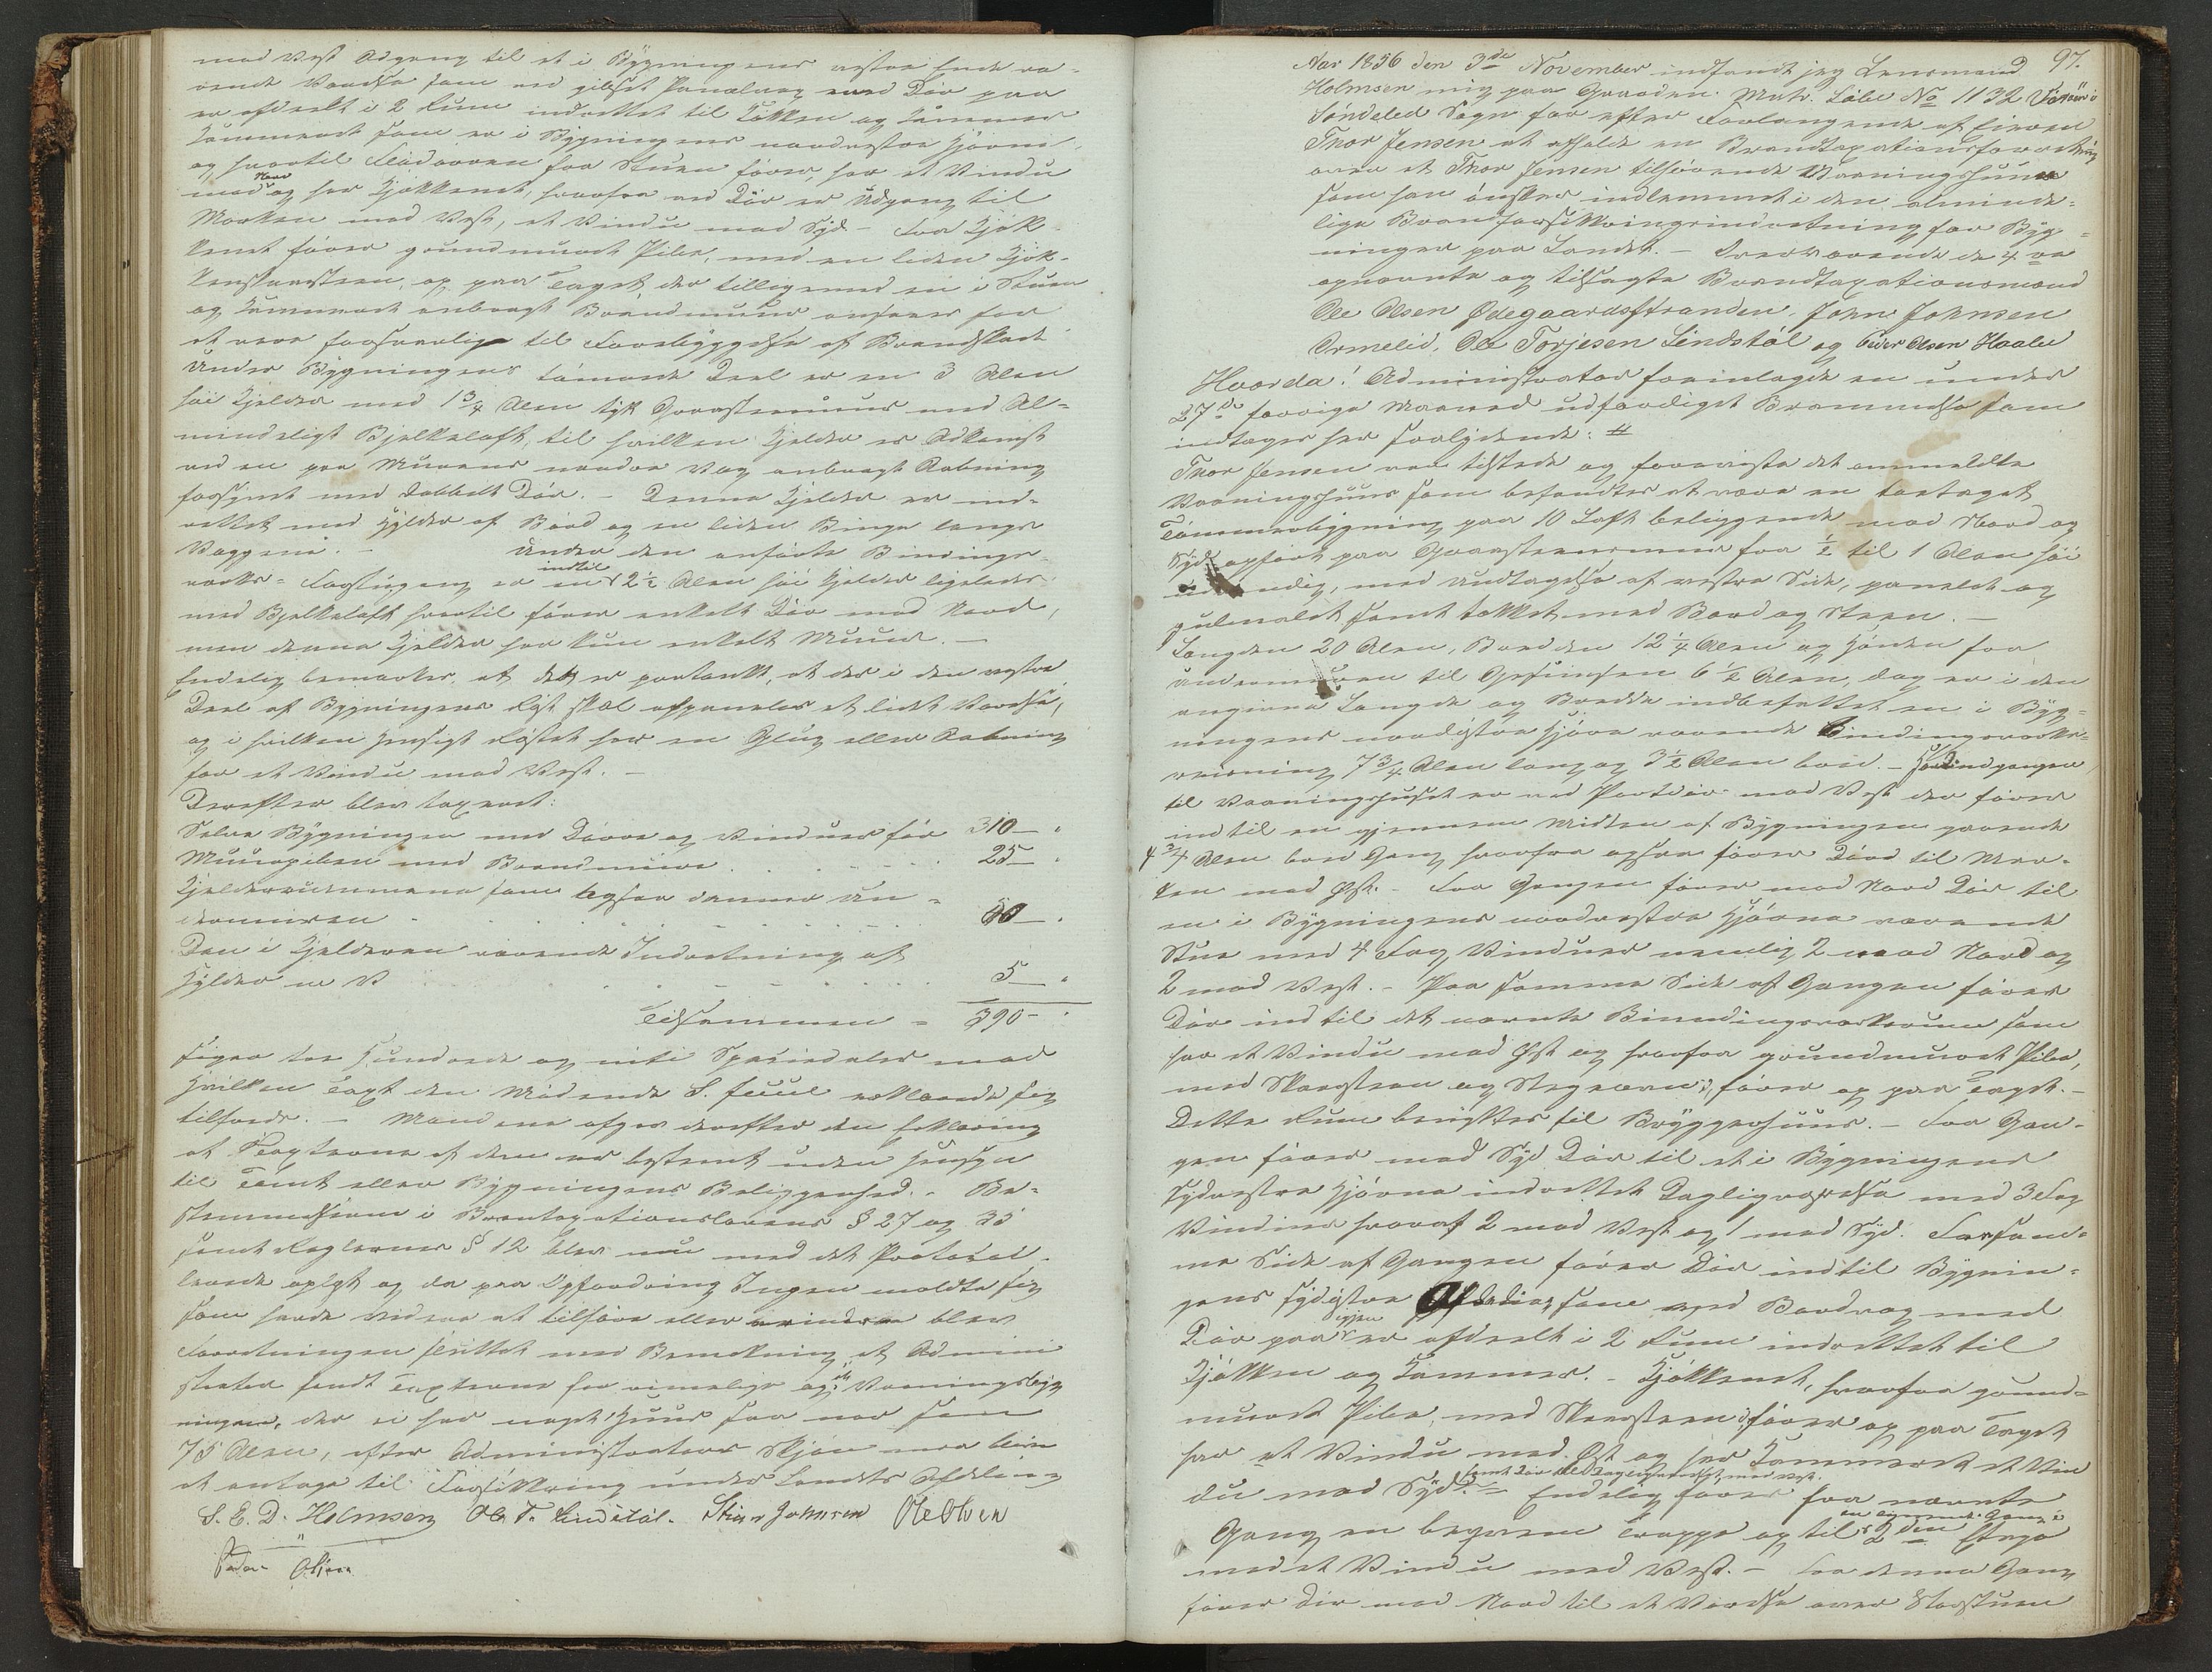 med Vest Adgang til et i Bygningens vestre Ende væ-
rende Værelse som ved gibset Panelvæg med Dør paa
er afdeelt i 2 Rum indrettet til Kjøkken og Kammer
Kammeret som er i Bygningens nordvestre Hjørne,
og hvortil Fløidøren fra Stuen fører, har et Vindu
mod Nord og har Kjøkkenet, hvorfra ved Dør er Udgang til
Marken mod Vest, et Vindu mod Syd – Fra Kjøk-
kenet fører grundmuret Pibe, med en liden Kjøk-
kenskorsteen, op paa Taget, der tilligemed en i Stuen
og Kammeret anbragt Brandmuur ansees for
at være forsvarlig til Forebyggelse af Brandskade
Under Bygningens tømrede Deel er en 3 Alen
høi Kjelder med 1 3/4 Alen tyk Graasteensmuur med Al-
mindeligt Bjelkeloft, til hvilken Kjelder er Adkomst
ved en paa Murens nordre Væg anbragt Aabning
forsynet med dobbelt Dør. – Denne Kjelder er ind-
rettet med Hylder af Bord og en liden Binge langs
Væggene. – Under den anførte Bindings-
værks-Forstugang er en indtil 2 1/2 Alen høi Kjelder ligeledes
med Bjelkeloft hvortil fører enkelt Dør mod Nord,
men denne Kjelder har kun enkelt Muur. –
Endelig bemærkes, at det er paatænkt, at der i den vestre
Deel af Bygningens Røst skal afpaneles et lidet Værelse,
og i hvilken Hensigt Røstet har en Glug eller Aabning
for et Vindu mod Vest. –
Derefter blev taxeret:
Selve Bygningen med Dørre og Vinduer for 310 – "
Muurpiben med Brandmure 25 – "
Kjelderrummene som ogsaa danner Un-
dermuren 50 – "
Den i Kjelderen værende Indretning af
Hylder m V 5 – "
Tilsammen = 390 – "
siger tre Hundrede og niti Speciedaler med
hvilken Taxt den Mødende S. Juul erklærede sig
tilfreds. – Mændene afgav derefter den Erklæring
at Taxterne af dem var bestemt uden Hensyn
til Tomt eller Bygningens Beliggenhed. – Be-
stemmelserne i Brantaxationslovens § 27 og 35
samt Reglernes § 12 blev nu med det Protocol-
lerede oplæst og da paa Opfordring Ingen meldte sig
som havde videre at tilføie eller erindre blev
Forretningen sluttet med Bemærkning at Admini
strator fandt Taxterne for rimelige og at Vaaningsbyg
ningen, der ei har noget Huus saa nær som
75 Alen, efter Administrators Skjøn maa blive
at antage til Forsikkring under Landets Afdeling
S. E. D. Holmsen Ole T. Lindstøl. Stian Johnsen Ole Olsen
Peder Olsen
97.
Aar 1856 den 3de November indfandt jeg Lensmand
Holmsen mig paa Gaarden Matr. Løbe No 1132 i
Søndeled Sogn for efter Forlangende af Eieren
Thor Jensen at afholde en Brandtaxationsforretning
over et Thor Jensen tilhørende Vaaningshuus
som han ønsker indlemmet i den alminde-
lige Brandforsikkringsindretning for Byg-
ninger paa Landet. – Overværende de 4 re
opnævnte og tilsagte Brandtaxationsmænd
Ole Olsen Ødegaardsstranden, John Johnsen
Ormelid, Ole Torjesen Lindstøl og Peder Olsen Haalie
Hvorda! Administrator fremlagde en under
27de forrige Maaned udfærdiget Berammelse som
indtages her saalydende: #
Thor Jensen var tilstede og foreviste det anmeldte
Vaaningshuus som befandtes at være en toetaget
Tømmerbygning paa 10 Loft beliggende mod Nord og
Syd, opført paa Graasteensmuur fra 1/2 til 1 Alen høi
udvendig, med Undtagelse af vestre Side, panelet og
gulmalet samt tækket med Bord og Steen. –
Længden 20 Alen, Bredden 12 1/4 Alen og Høiden fra
Undermuren til Gesimsen 6 1/2 Alen, dog er i den
angivne Længde og Bredde indbefattet en i Byg-
ningens nordøstre Hjørne værende Bindingsværks-
7 3/4 Alen lang og 3 1/2 Alen bred. – Hovedindgangen
til Vaaningshuset er ved Portdør mod Vest der fører
ind til en gjennem Midten af Bygningen gaaende
4 3/4 Alen bred Gang hvorfra ogsaa fører Dør til Mar-
ken mod Øst. – Fra Gangen fører mod Nord Dør til
en i Bygningens nordvestre Hjørne værende
Stue med 4 Fag Vinduer nemlig 2 mod Nord og
2 mod Vest. – Paa samme Side af Gangen fører
Dør ind til det nævnte Bindingsværksrum som
har et Vindu mod Øst og hvorfra grundmuret Pibe,
med Skorsteen og Bagerovn i, fører op paa Taget. –
Dette Rum benyttes til Bryggerhuus. – Fra Gan-
gen fører mod Syd Dør til et i Bygningens
sydvestre Hjørne indrettet Dagligværelse med 3 Fag
Vinduer hvoraf 2 mod Vest og 1 mod Syd. Fra sam-
me Side af Gangen fører Dør indtil Bygnin-
gens sydøstre Afdeling, som ved Bordvæg med
Dør paa igjen er afdeelt i 2 Rum indrettet til
Kjøkken og Kammer. – Kjøkkenet, hvorfra grund-
muret Pibe, med Skorsteen i, fører op paa Taget
har et Vindu mod Øst og har Kammeret et Vin
du mod Syd samt Dør til Dagligværelset mod Vest. – Endelig fører fra nævnte
Gang en beqvem Trappe op til en lignende Gang i 2den Etage
med et Vindu mod Vest. – Fra denne Gang
fører Dør mod Nord til et Værelse over Storstuen